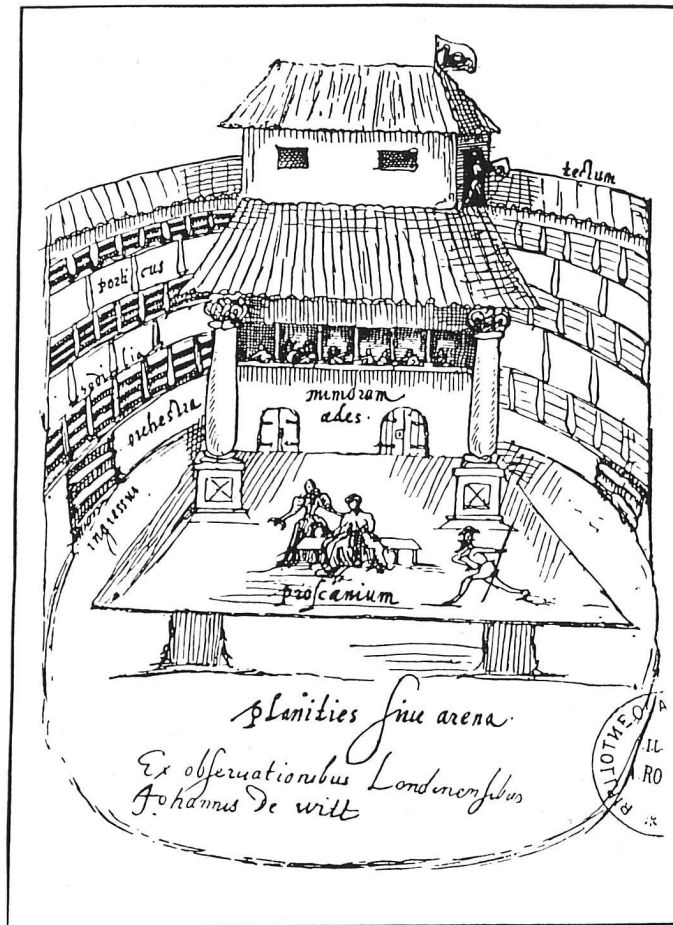 tectum
porticus
sedilia
orchestra
mimorum
ædes.
ingressus
proscænium
planities sive arena.
Ex observationibus Londinensibus
Johannis De witt